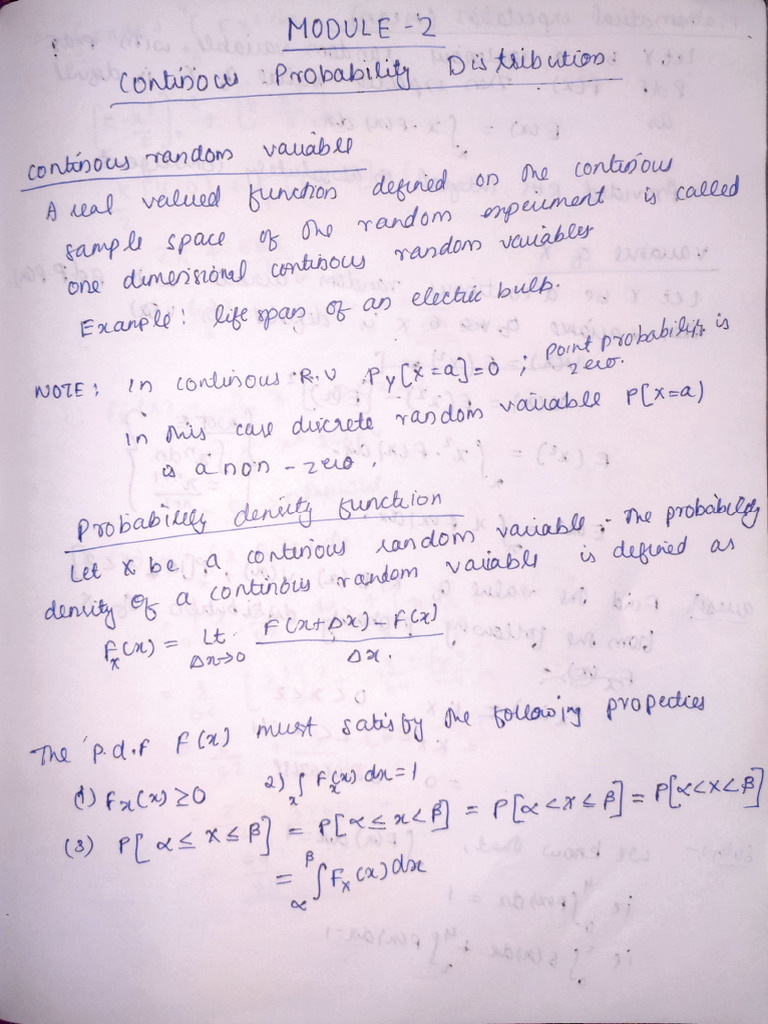 MODULE - 2
Continous Probability Distribution
continous random variable
A real valued function defined on the continous
sample space of the random experiment is called
one dimensional continous random variables
Example: life span of an electric bulb.
NOTE: in continous R.V P_Y[X=a]=0 ; point probability is zero.
In this case discrete random variable P[X=a]
is a non-zero.
Probability density function
Let X be a continous random variable. The probability
density of a continous random variable is defined as
F_x(x) = Lt Δx→0 F(x+Δx) - F(x) / Δx.
The p.d.f F(x) must satisby the following properties
(1) F_x(x) ≥ 0 2) ∫_x F_x(x) dx = 1
(3) P[α ≤ X ≤ β] = P[α ≤ x < β] = P[α < X ≤ β] = P[α < X < β]
= ∫_α^β F_x(x) dx